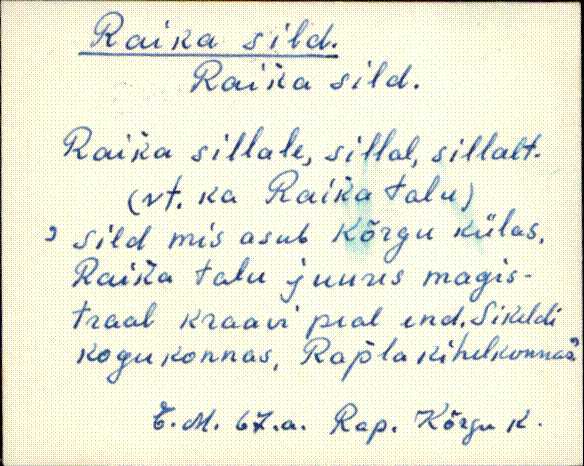 Raika sild.
Raika sild.
Raika sillale, sillal, sillalt.
(vt. ka Raika talu)
, sild mis asub Kõrgu külas,
Raika talu juures magis-
traal kraavi peal end. Sikeldi
kogukonnas, Rapla kihelkonnas?
E.M. 67.a. Rap. Kõrgu k.